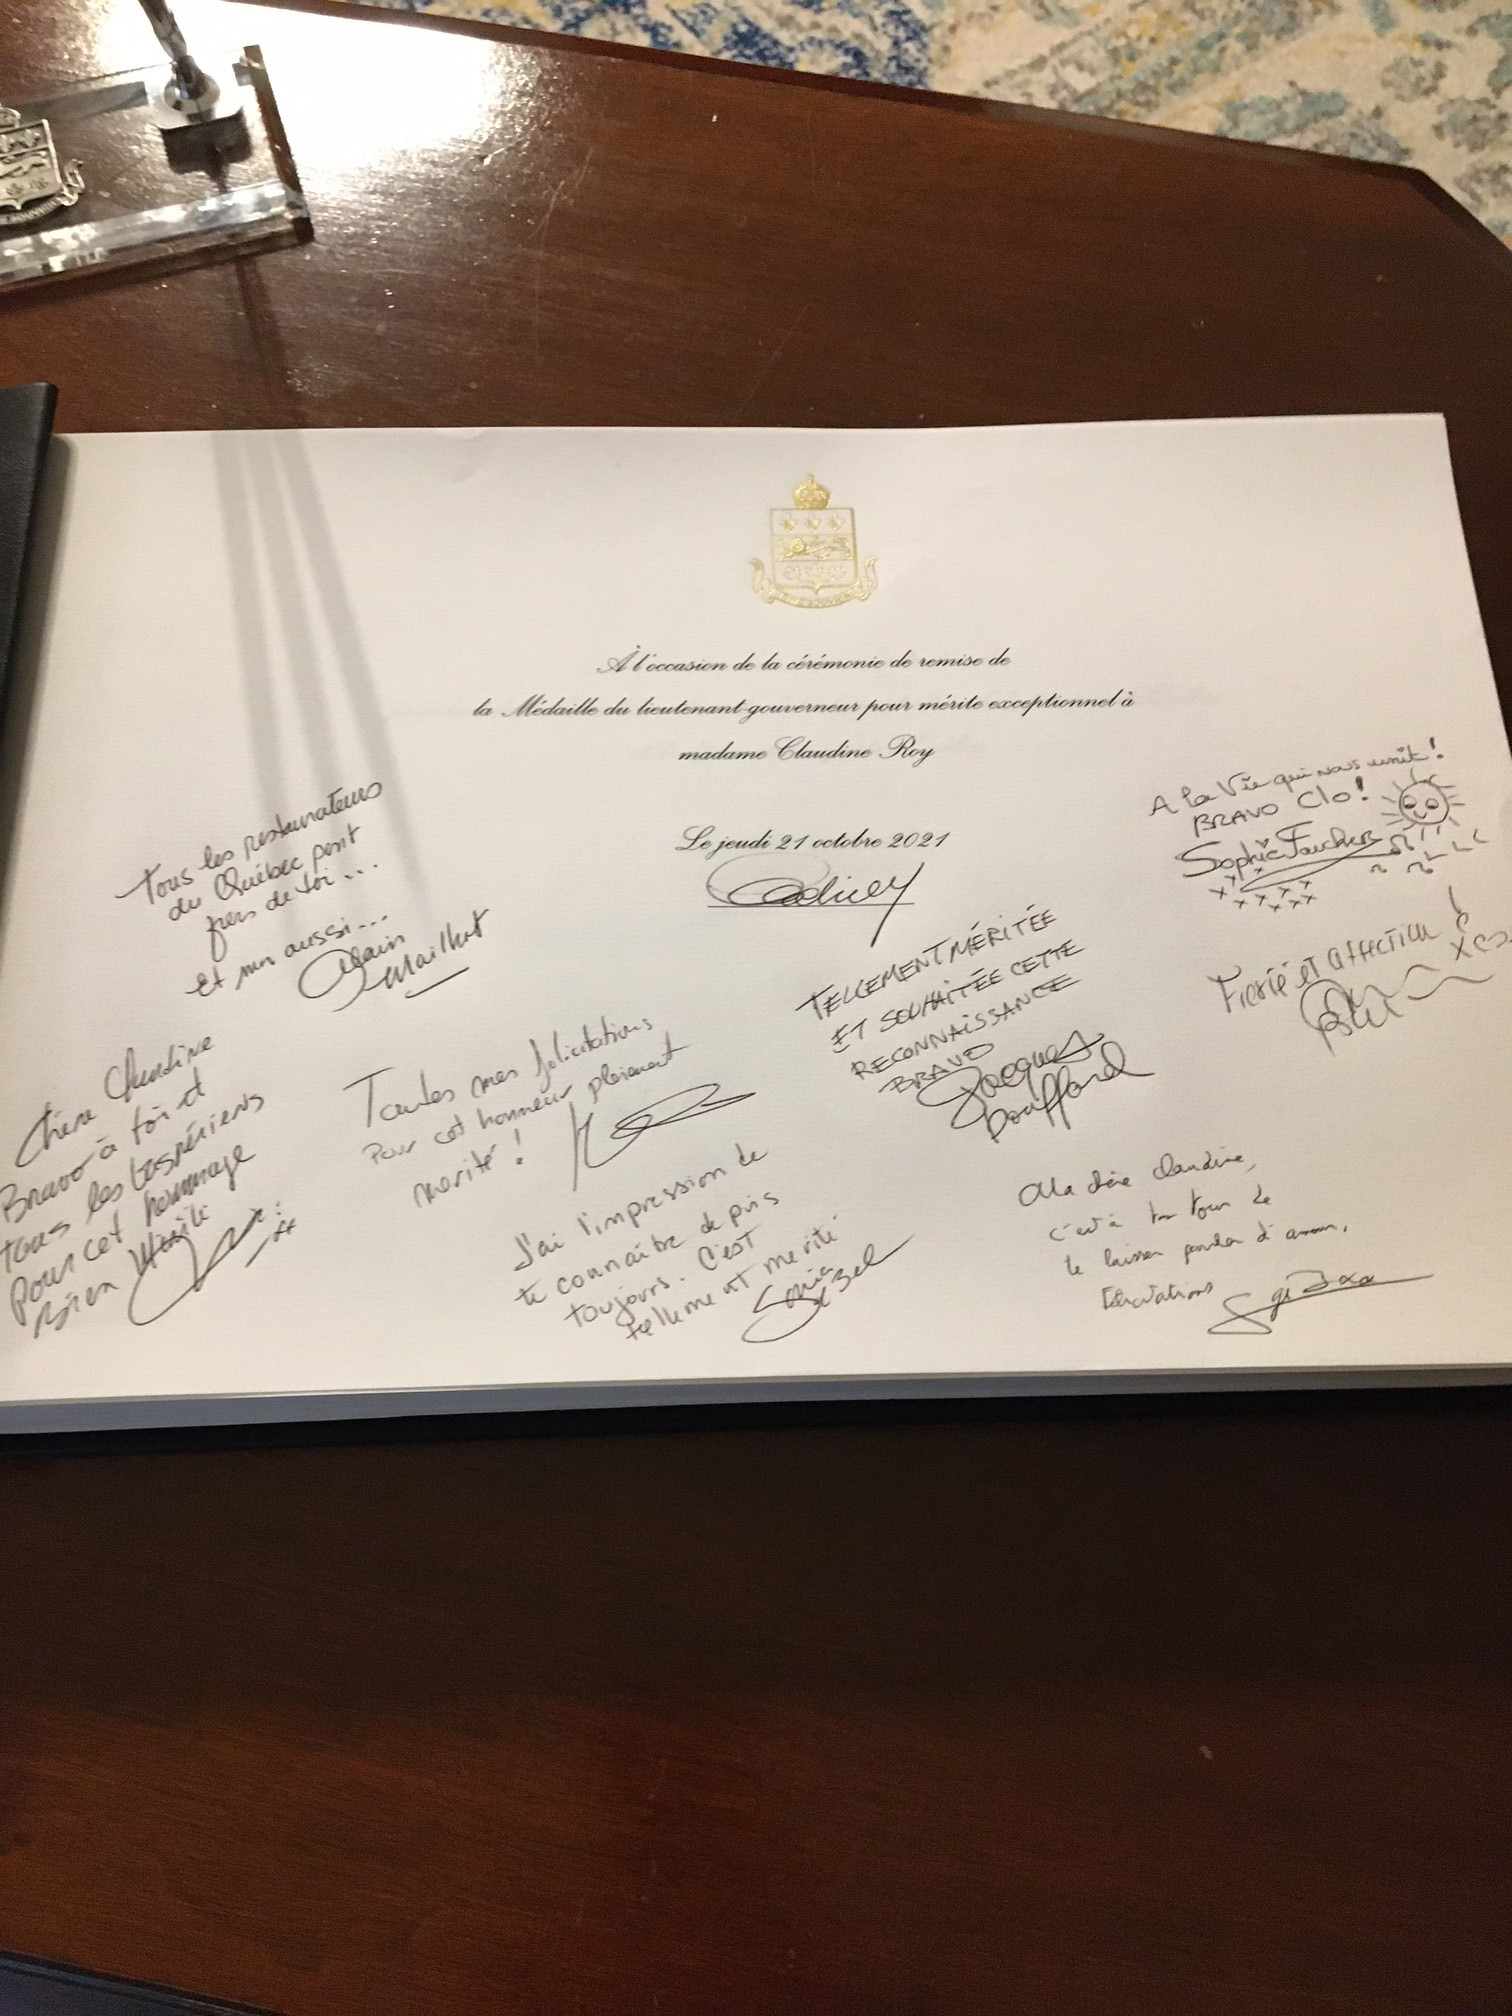 À l'occasion de la cérémonie de remise de
la Médaille du lieutenant-gouverneur pour mérite exceptionnel à
madame Claudine Roy
Le jeudi 21 octobre 2021
Tous les restaurateurs
du Québec sont
fiers de toi...
et moi aussi...
Alain
Maillhot
A la Vie qui nous unit!
BRAVO Clo!
Sophie Faucher
TELLEMENT MÉRITÉE
ET SOUHAITÉE CETTE
RECONNAISSANCE
BRAVO
Jacques
Bouffard
Fierté et affection
Chère Claudine
Bravo à toi et
tous les Gaspésiens
Pour cet hommage
bien Mérité
Toutes mes félicitations
Pour cet honneur pleinement
mérité!
J'ai l'impression de
te connaître depuis
toujours. C'est
tellement mérité
Sonia
Ma chère Claudine,
c'est à ton tour de
te laisser parler d'amour.
Félicitations